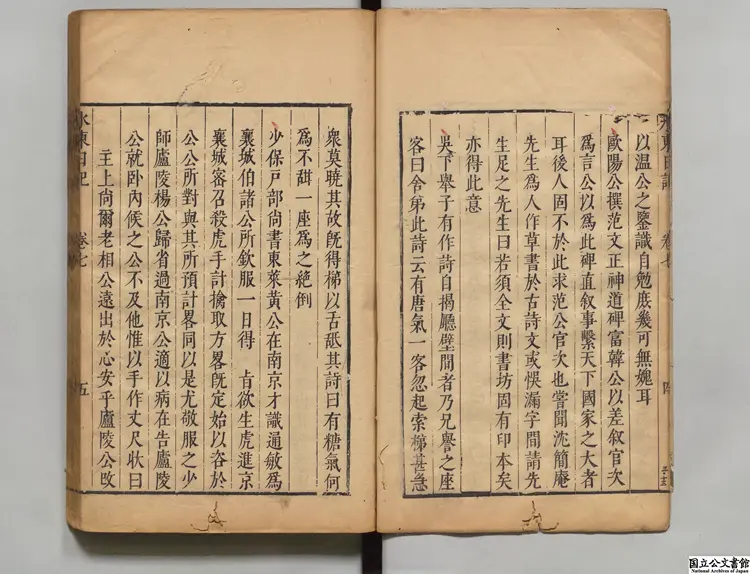 水東日記 卷七 四
以温公之鑒識自勉庶幾可無媿耳
歐陽公撰范文正神道碑富韓公以差叙官次
爲言公以爲此碑直叙事繫天下國家之大者
耳後人固不於此求范公官次也嘗聞沈簡庵
先生爲人作草書於古詩文或悞漏字間請先
生足之先生曰若須全文則書坊固有印本矣
亦得此意
吳下舉子有作詩自揭廳壁間者乃兄譽之座
客曰舍弟此詩云有唐氣一客忽起索梯甚急
衆莫曉其故旣得梯以舌舐其詩曰有糖氣何
爲不甜一座爲之絶倒
少保戸部尚書東萊黃公在南京才識通敏爲
襄城伯諸公所欽服一日得 㫖欲生虎進京
襄城密召殺虎手計擒取方畧旣定始以咨於
公公所對與其所預計畧同以是尤敬服之少
師廬陵楊公歸省過南京公適以病在告廬陵
公就卧内候之公不及他惟以手作丈尺狀曰
主上尚爾老相公遠出於心安乎廬陵公攺
水東日記 卷七 五
国立公文書館
National Archives of Japan